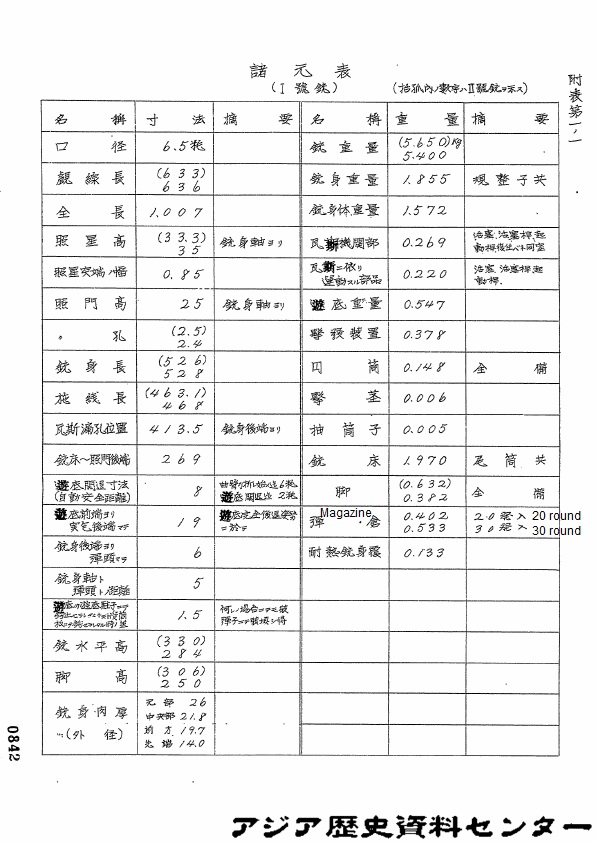 諸元表
(I號銃)
(括弧内ノ數字ハII號銃ヲ示ス)
附表第一ノ一
名稱 寸法 摘要 名稱 重量 摘要
口径 6.5粍 銃重量 (5.650)kg 5.400
覘線長 (633) 636 銃身重量 1.855 規整子共
全長 1.007 銃身体重量 1.572
照星高 (33.3) 35 銃身軸ヨリ 瓦斯機関部 0.269
照星突端ノ幅 0.85 瓦斯ニ依リ運動スル部品 0.220 活塞、活塞桿起動桿.
照門高 25 銃身軸ヨリ 遊底重量 0.547
〃 孔 (2.5) 2.4 擊發装置 0.378
銃身長 (526) 528 円筒 0.148 全備
施线長 (463.1) 468 擊茎 0.006
瓦斯漏孔位置 413.5 銃身後端ヨリ 抽筒子 0.005
銃床~照門後端 269 銃床 1.970 尾筒共
遊底開退寸法(自動安全距離) 8 遊底開退 2粍 脚 (0.632) 0.382 全備
遊底前端ヨリ 後端マデ 19 彈倉 Magazine 0.402 20發入 20 round
0.533 30發入 30 round
銃身後端ヨリ彈頭マデ 6 耐熱銃身覆 0.133
銃身軸ト彈頭ト距離 5
1.5 何レ場合ニテモ
銃水平高 (330) 284
脚高 (306) 250
銃身肉厚(外径) 元部 26
中央部 21.8
前方 19.7
先端 14.0
0842
アジア歴史資料センター